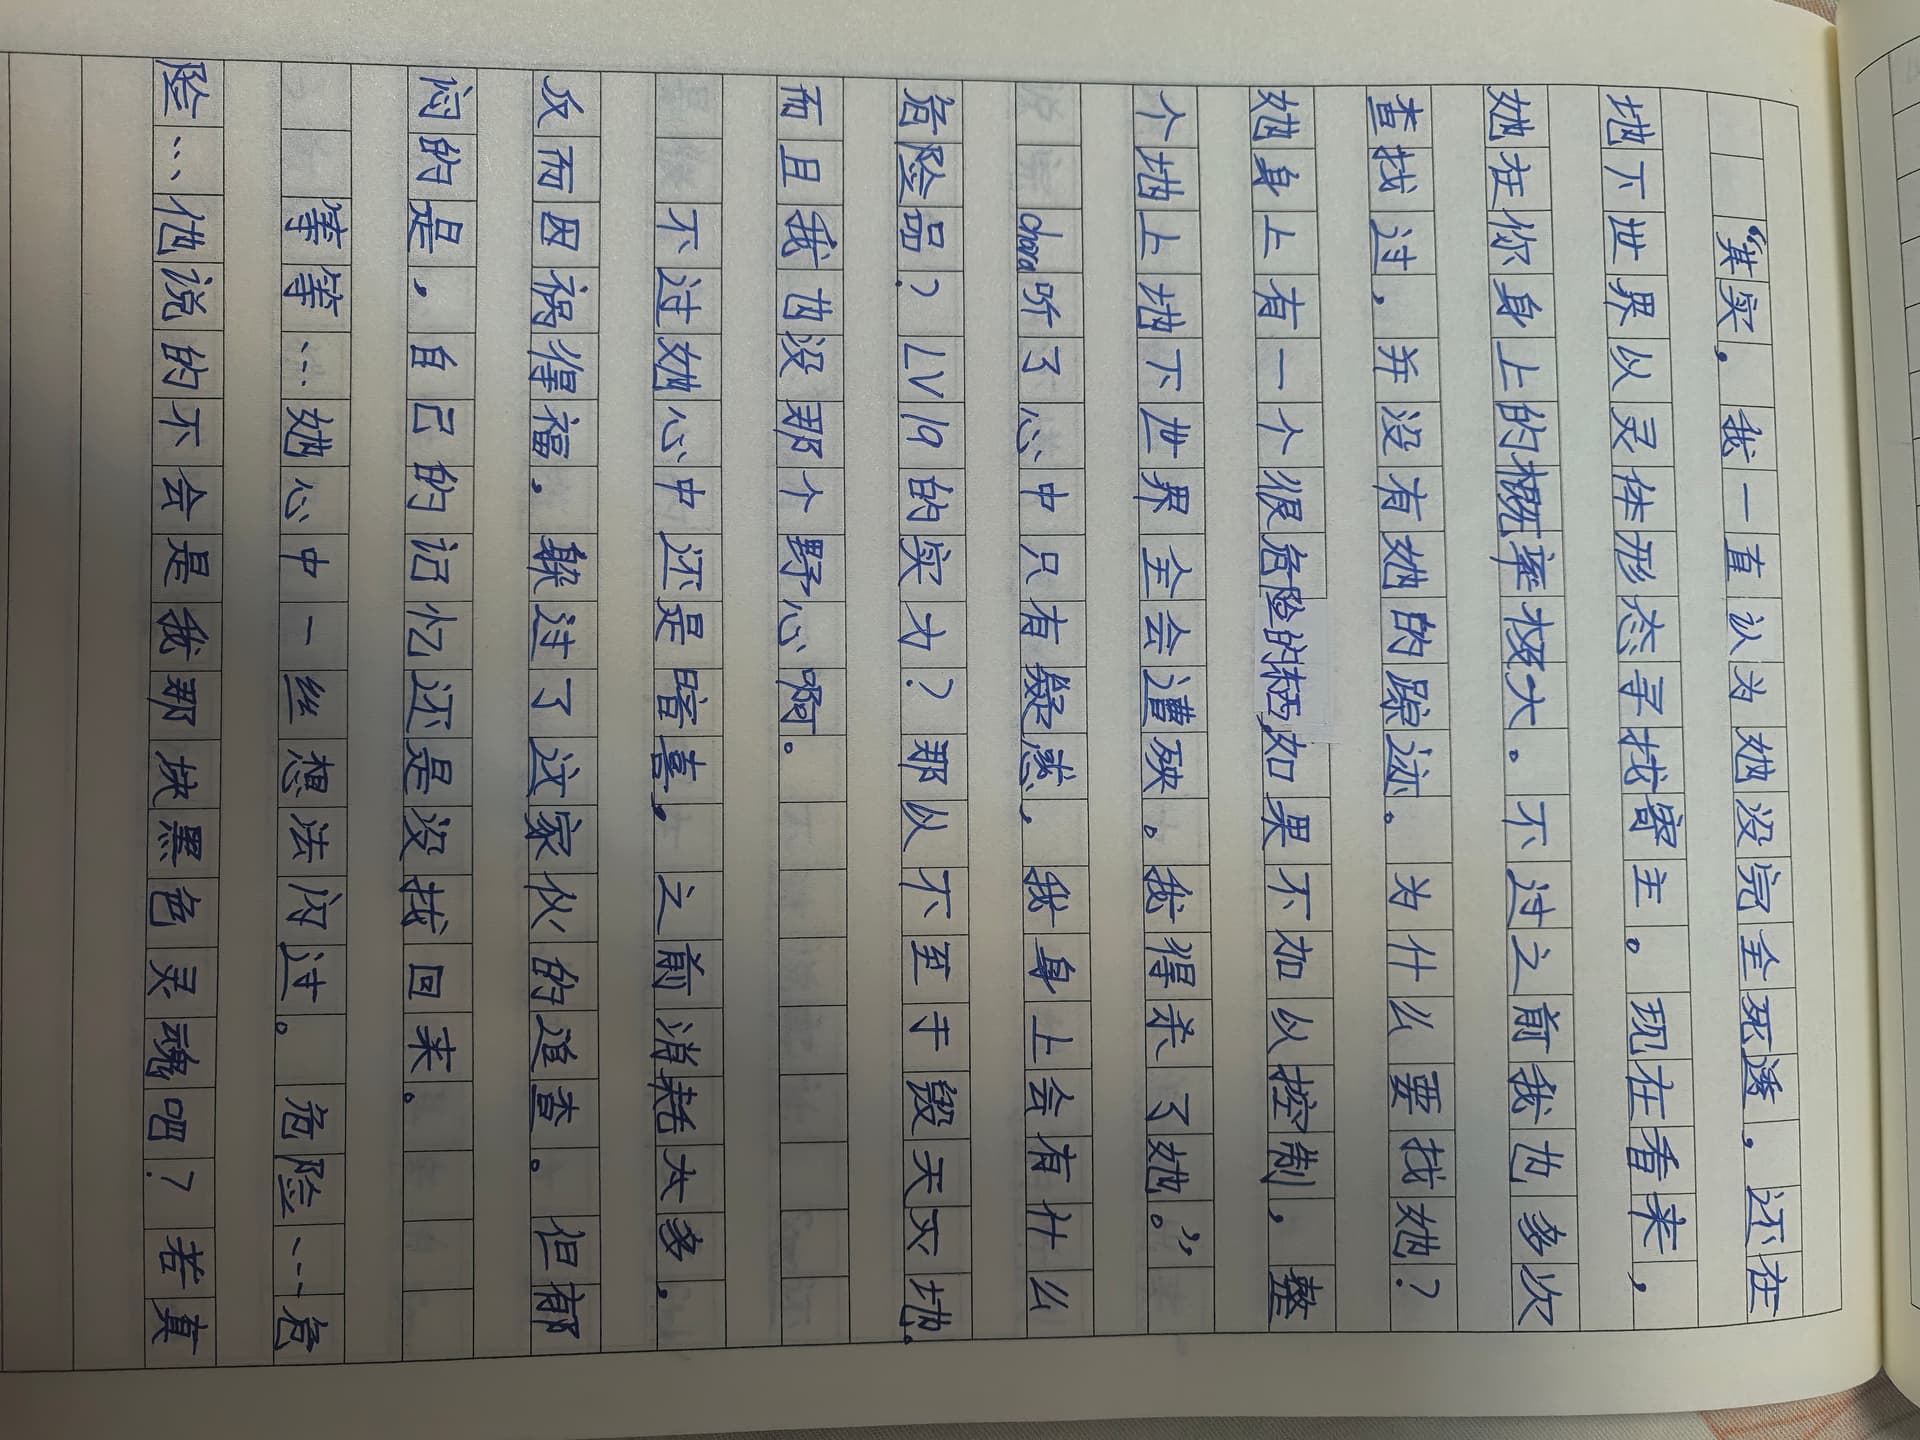 “其实，我一直认为她没完全死透，还在
地下世界以灵体形态寻找寄主。现在看来，
她在你身上的概率极大。不过之前我也多次
查找过，并没有她的踪迹。为什么要找她？
她身上有一个很危险的东西，如果不加以控制，整
个地上地下世界全会遭殃。我得杀了她。”
chara听了心中只有疑惑，我身上会有什么
危险品？LV19的实力？那从不至于毁天灭地，
而且我也没那个野心啊。
不过她心中还是暗喜，之前消耗太多，
反而因祸得福，躲过了这家伙的追查。但郁
闷的是，自己的记忆还是没找回来。
等等…她心中一丝想法闪过。危险…危
险…他说的不会是我那块黑色灵魂吧？若真